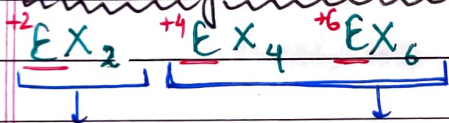 +2 EX₂ +4 EX₄ +6 EX₆